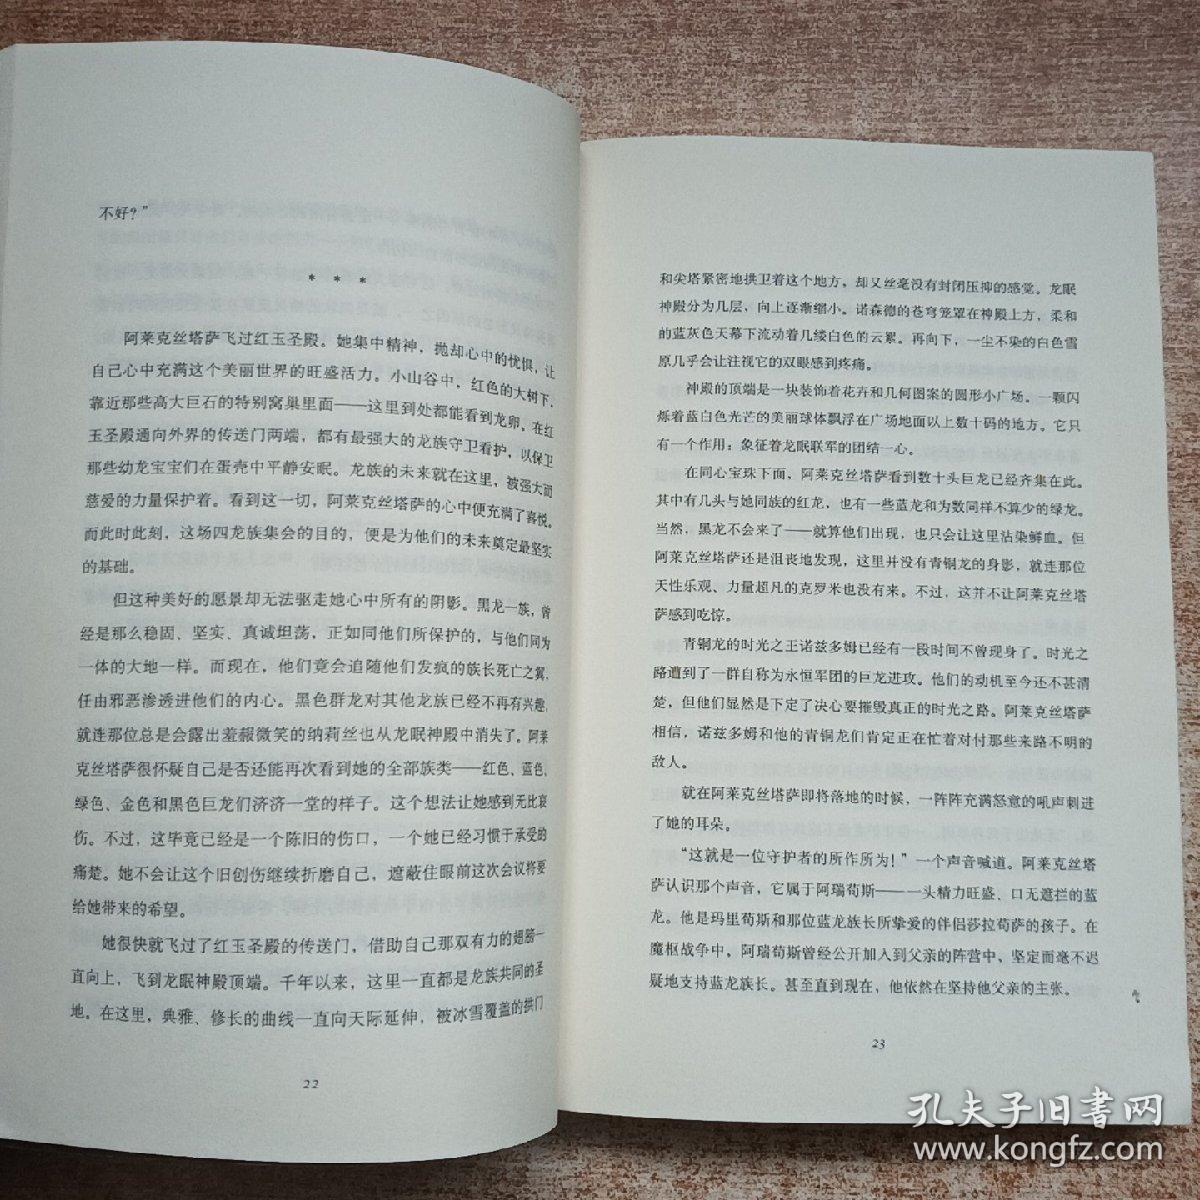 不好？”
* * *
阿莱克丝塔萨飞过红玉圣殿。她集中精神，抛却心中的忧惧，让
自己心中充满这个美丽世界的旺盛活力。小山谷中，红色的大树下，
靠近那些高大巨石的特别窝巢里面——这里到处都能看到龙卵。在红
玉圣殿通向外界的传送门两端，都有最强大的龙族守卫看护，以保卫
那些幼龙宝宝们在蛋壳中平静安眠。龙族的未来就在这里，被强大而
慈爱的力量保护着。看到这一切，阿莱克丝塔萨的心中便充满了喜悦。
而此时此刻，这场四龙族集会的目的，便是为他们的未来奠定最坚实
的基础。
但这种美好的愿景却无法驱走她心中所有的阴影。黑龙一族，曾
经是那么稳固、坚实、真诚坦荡，正如同他们所保护的，与他们同为
一体的大地一样。而现在，他们竟会追随他们发疯的族长死亡之翼，
任由邪恶渗透进他们的内心。黑色群龙对其他龙族已经不再有兴趣，
就连那位总是会露出羞赧微笑的纳莉丝也从龙眠神殿中消失了。阿莱
克丝塔萨很怀疑自己是否还能再次看到她的全部族类——红色、蓝色、
绿色、金色和黑色巨龙们济济一堂的样子。这个想法让她感到无比哀
伤。不过，这毕竟已经是一个陈旧的伤口，一个她已经习惯于承受的
痛楚。她不会让这个旧创伤继续折磨自己，遮蔽住眼前这次会议将要
给她带来的希望。
她很快就飞过了红玉圣殿的传送门，借助自己那双有力的翅膀一
直向上，飞到龙眠神殿顶端。千年以来，这里一直都是龙族共同的圣
地。在这里，典雅、修长的曲线一直向天际延伸，被冰雪覆盖的拱门
22
和尖塔紧密地拱卫着这个地方，却又丝毫没有封闭压抑的感觉。龙眠
神殿分为几层，向上逐渐缩小。诺森德的苍穹笼罩在神殿上方，柔和
的蓝灰色天幕下流动着几缕白色的云絮。再向下，一尘不染的白色雪
原几乎会让注视它的双眼感到疼痛。
神殿的顶端是一块装饰着花卉和几何图案的圆形小广场。一颗闪
烁着蓝白色光芒的美丽球体飘浮在广场地面以上数十码的地方。它只
有一个作用：象征着龙眠联军的团结一心。
在同心宝珠下面，阿莱克丝塔萨看到数十头巨龙已经齐集在此。
其中有几头与她同族的红龙，也有一些蓝龙和为数同样不算少的绿龙。
当然，黑龙不会来了——就算他们出现，也只会让这里沾染鲜血。但
阿莱克丝塔萨还是沮丧地发现，这里并没有青铜龙的身影，就连那位
天性乐观、力量超凡的克罗米也没有来。不过，这并不让阿莱克丝塔
萨感到吃惊。
青铜龙的时光之王诺兹多姆已经有一段时间不曾现身了。时光之
路遭到了一群自称为永恒军团的巨龙进攻。他们的动机至今还不甚清
楚，但他们显然是下定了决心要摧毁真正的时光之路。阿莱克丝塔萨
相信，诺兹多姆和他的青铜龙们肯定正在忙着对付那些来路不明的
敌人。
就在阿莱克丝塔萨即将落地的时候，一阵阵充满怒意的吼声刺进
了她的耳朵。
“这就是一位守护者的所作所为！”一个声音喊道。阿莱克丝塔
萨认识那个声音，它属于阿瑞苟斯——一头精力旺盛、口无遮拦的蓝
龙。他是玛里苟斯和那位蓝龙族长所挚爱的伴侣莎拉苟萨的孩子。在
魔枢战争中，阿瑞苟斯曾经公开加入到父亲的阵营中，坚定而毫不迟
疑地支持蓝龙族长。甚至直到现在，他依然在坚持他父亲的主张。
23
孔夫子旧书网
www.kongfz.com